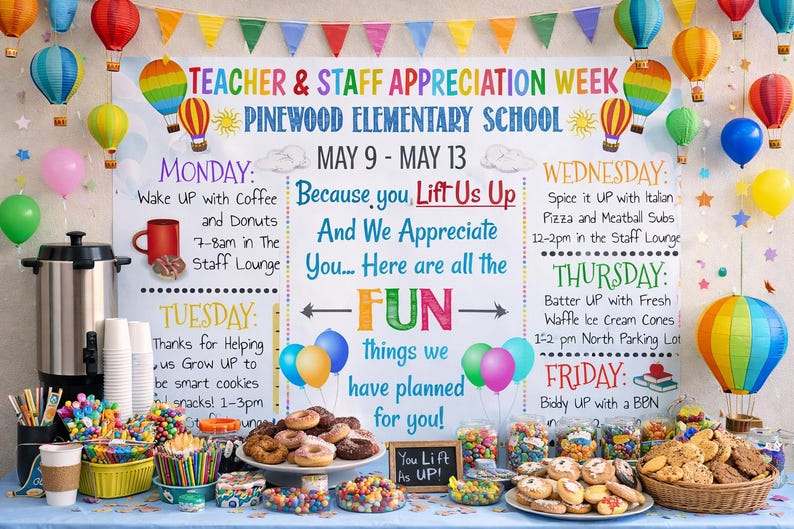 TEACHER & STAFF APPRECIATION WEEK
PINEWOOD ELEMENTARY SCHOOL
MAY 9 - MAY 13
MONDAY:
Wake UP with Coffee
and Donuts
7-8am in The
Staff Lounge
TUESDAY:
Thanks for Helping
us Grow UP to
be smart cookies
snacks! 1-3pm
Because you Lift Us Up
And We Appreciate
You... Here are all the
FUN
things we
have planned
for you!
WEDNESDAY:
Spice it UP with Italian
Pizza and Meatball Subs
12-2pm in the Staff Lounge
THURSDAY:
Batter UP with Fresh
Waffle Ice Cream Cones
1-2 pm North Parking Lot
FRIDAY:
Biddy UP with a BBN
You Lift
As UP!